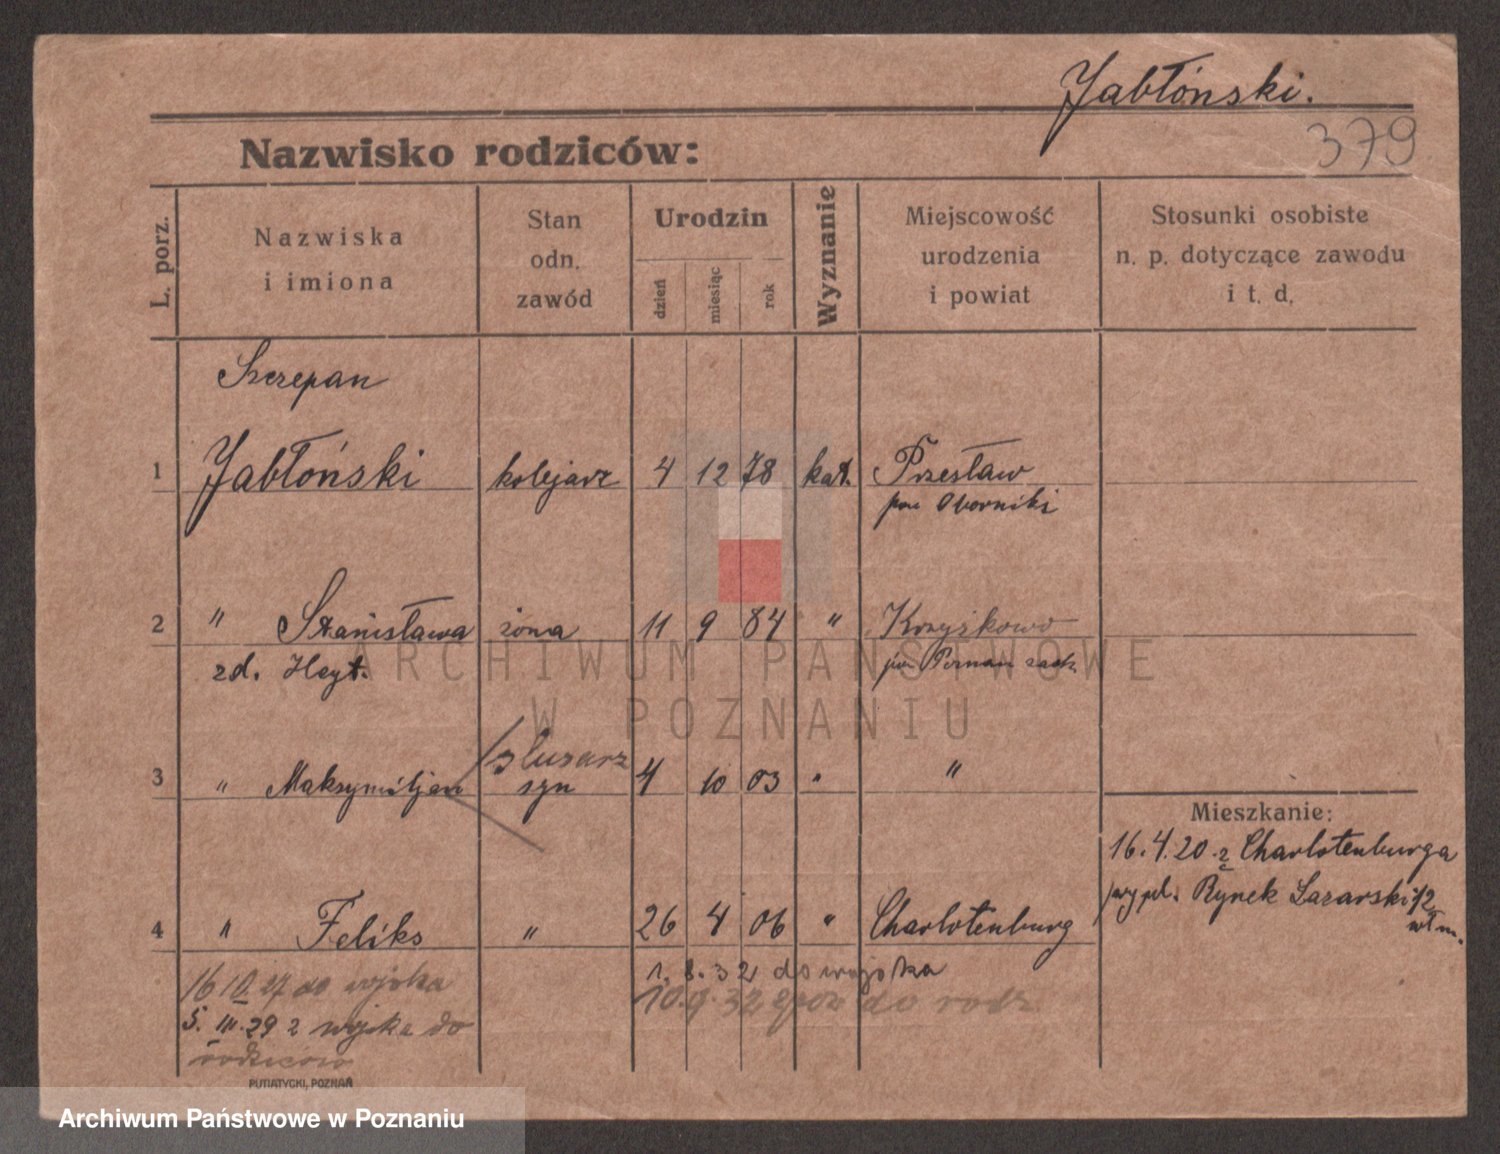 Jabłoński.
379
Nazwisko rodziców:
L. porz.
Nazwiska
i imiona
Stan
odn.
zawód
Urodzin
dzień
miesiąc
rok
Wyznanie
Miejscowość
urodzenia
i powiat
Stosunki osobiste
n. p. dotyczące zawodu
i t. d.
Szczepan
1 Jabłoński kolejarz 4 12 78 kat. Przesław
pow Oborniki
2 " Stanisława żona 11 9 84 " Krzyżkowo
zd. Heyt. pow Poznań zach
ślusarz
3 " Maksymiljan syn 4 10 03 " "
Mieszkanie:
16.4.20 z Charlotenburga
Rynek Łazarski 12
4 " Feliks " 26 4 06 " Charlotenburg
16 10. 27 do wojska
5. III. 29 z wojska do
rodziców
1. 8. 32 do wojska
10.9.32 z do rodz.
PUTIATYCKI, POZNAŃ
ARCHIWUM PAŃSTWOWE
W POZNANIU
Archiwum Państwowe w Poznaniu